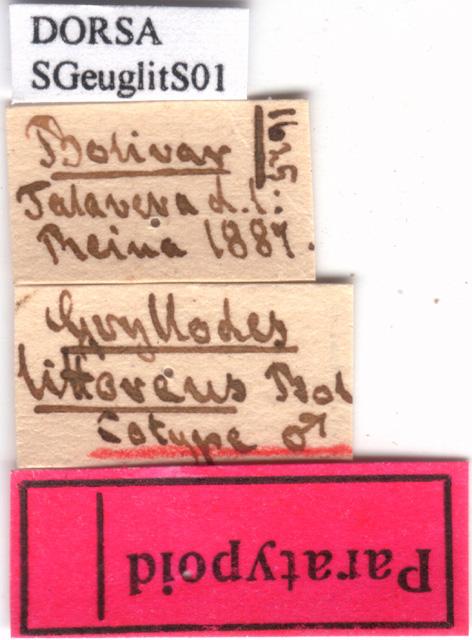 DORSA
SGeuglitS01
Bolivar
Talavera d. l:
Reina 1887.
Gryllodes
littoreus Bol
Cotype ♂
Paratypoid